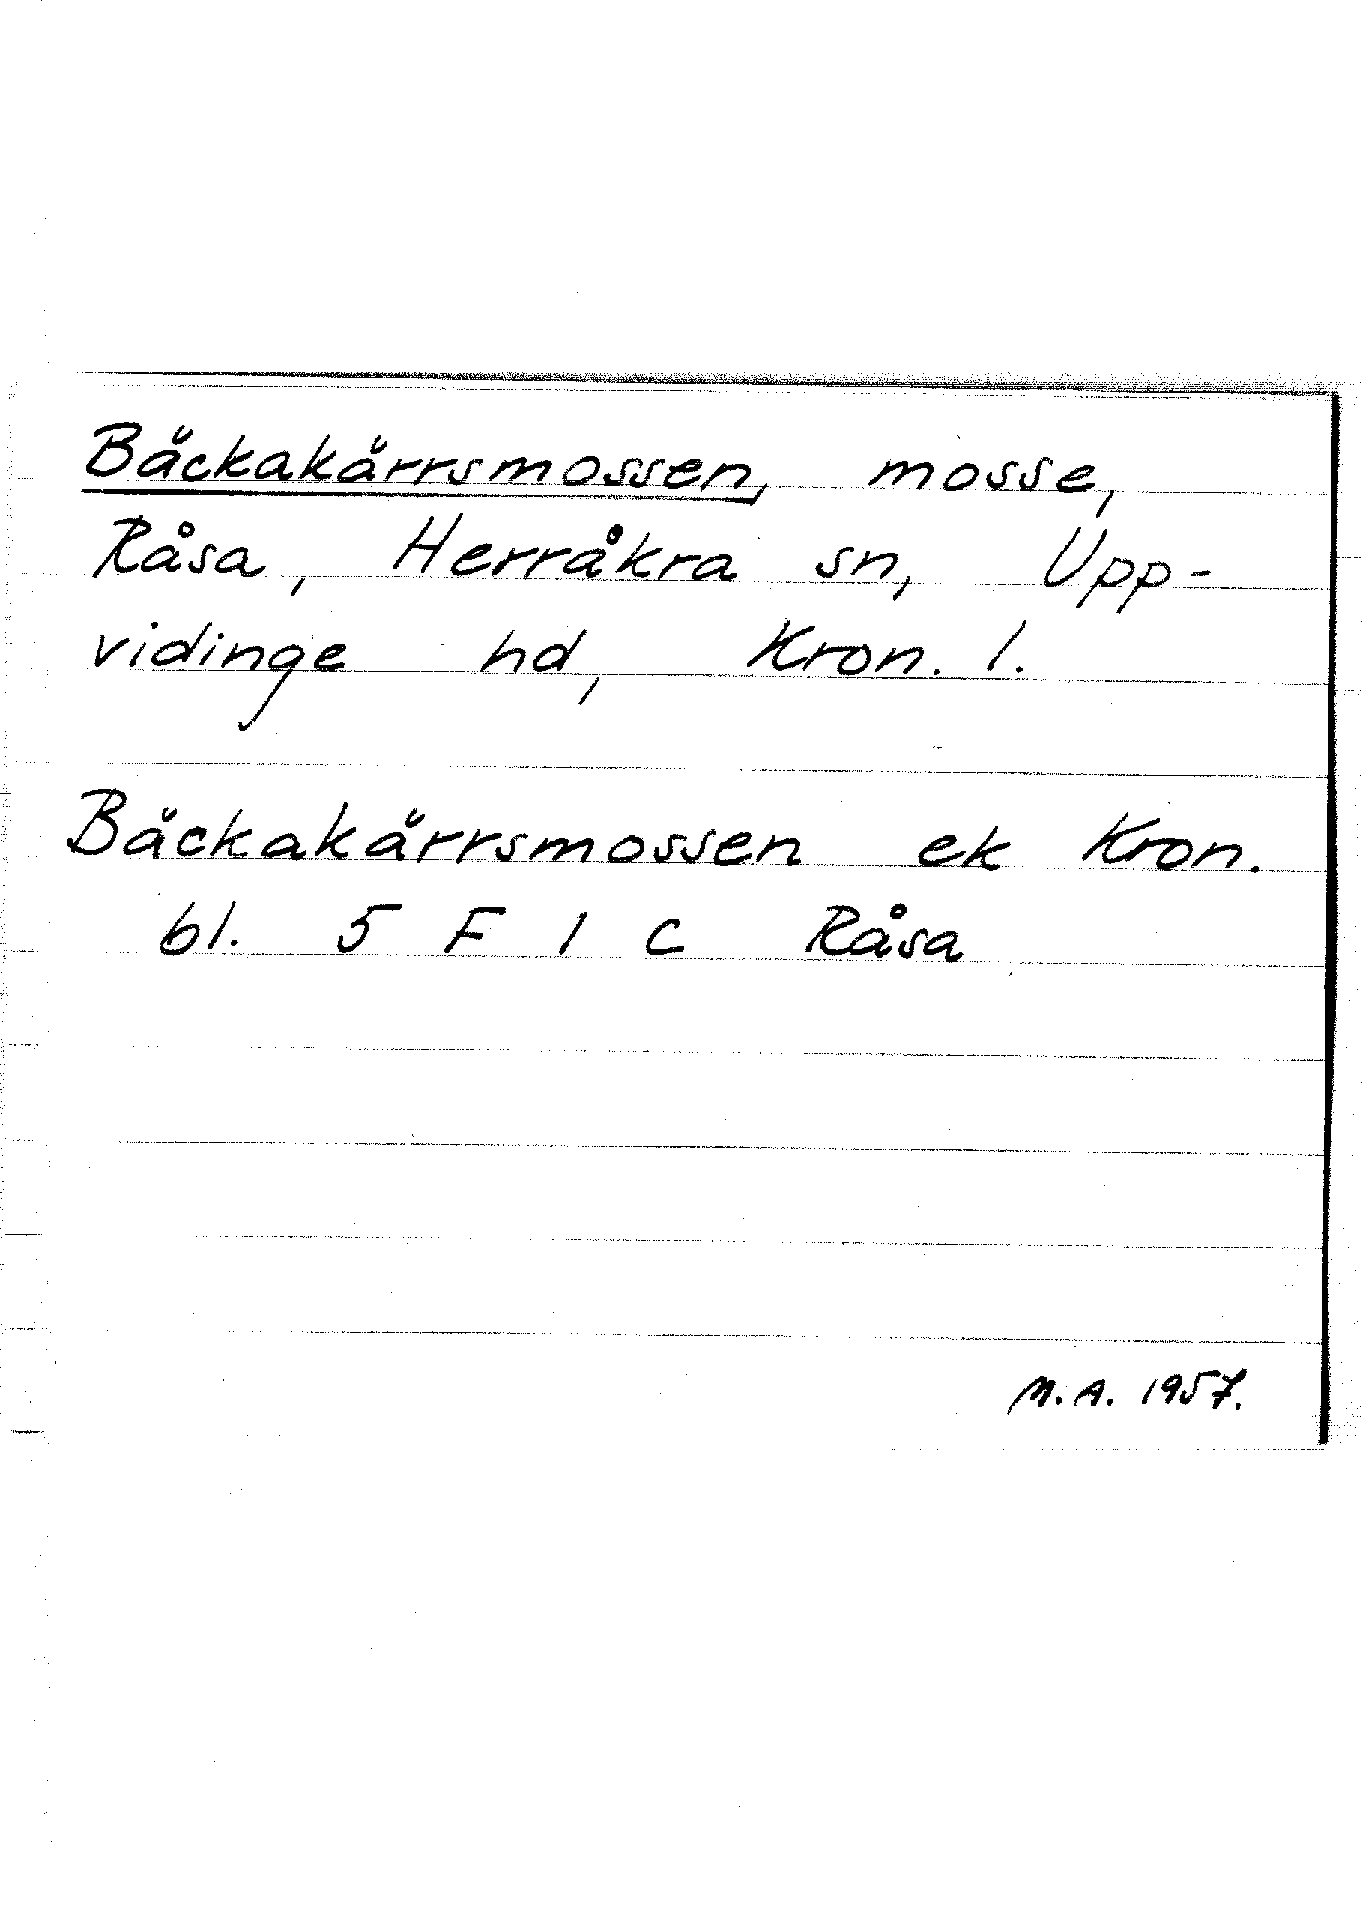 Bäckakärrsmossen, mosse,
Råsa, Herråkra sn, Upp-
vidinge hd, Kron. l.
Bäckakärrsmossen ek Kron.
bl. 5 F 1 c Råsa
M.A. 1957.